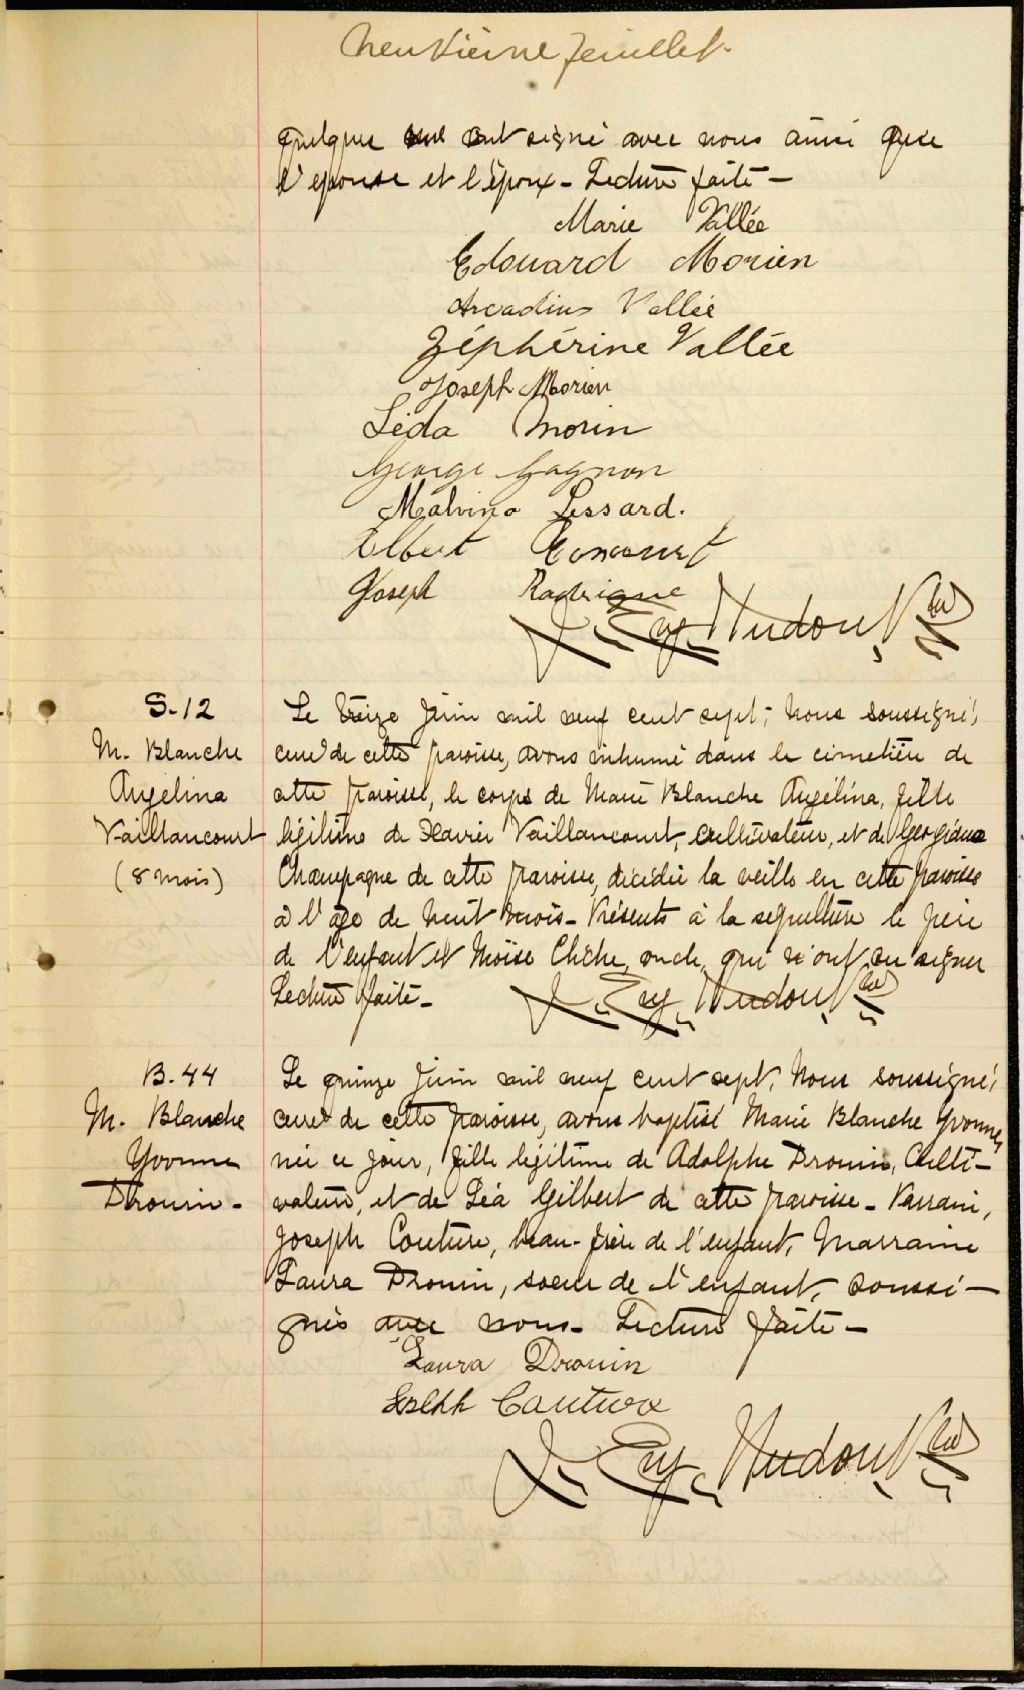 Neuvième feuillet
quelques uns ont signé avec nous ainsi que
l'épouse et l'époux - Lecture faite -
Marie Vallée
Edouard Morien
Arcadius Vallée
Zéphérine Vallée
Joseph Morien
Léda Morin
George Gagnon
Malvina Lessard.
Albert
Joseph Rodrigue
J. Eug. Hudon, Ptre
S-12
M. Blanche
Angélina
Vaillancourt
(8 mois)
Le treize Juin mil neuf cent sept, nous soussigné,
curé de cette paroisse, avons inhumé dans le cimetière de
cette paroisse, le corps de Marie Blanche Angélina, fille
légitime de Xavier Vaillancourt, cultivateur, et de Georgiana
Champagne de cette paroisse, décédée la veille en cette paroisse
à l'age de huit mois - Présents à la sépulture le père
de l'enfant et Moïse Cliche, oncle, qui n'ont su signer
Lecture faite - J. Eug. Hudon, Ptre
B. 44
M. Blanche
Yvonne
Drouin -
Le quinze Juin mil neuf cent sept, Nous soussigné,
curé de cette paroisse, avons baptisé Marie Blanche Yvonne,
née ce jour, fille légitime de Adolphe Drouin, Culti-
vateur, et de Léa Gilbert de cette paroisse - Parrain,
Joseph Couture, beau-frère de l'enfant, Marraine
Laura Drouin, soeur de l'enfant, soussi-
gnés avec nous - Lecture faite -
Laura Drouin
Couture
J. Eug. Hudon, Ptre